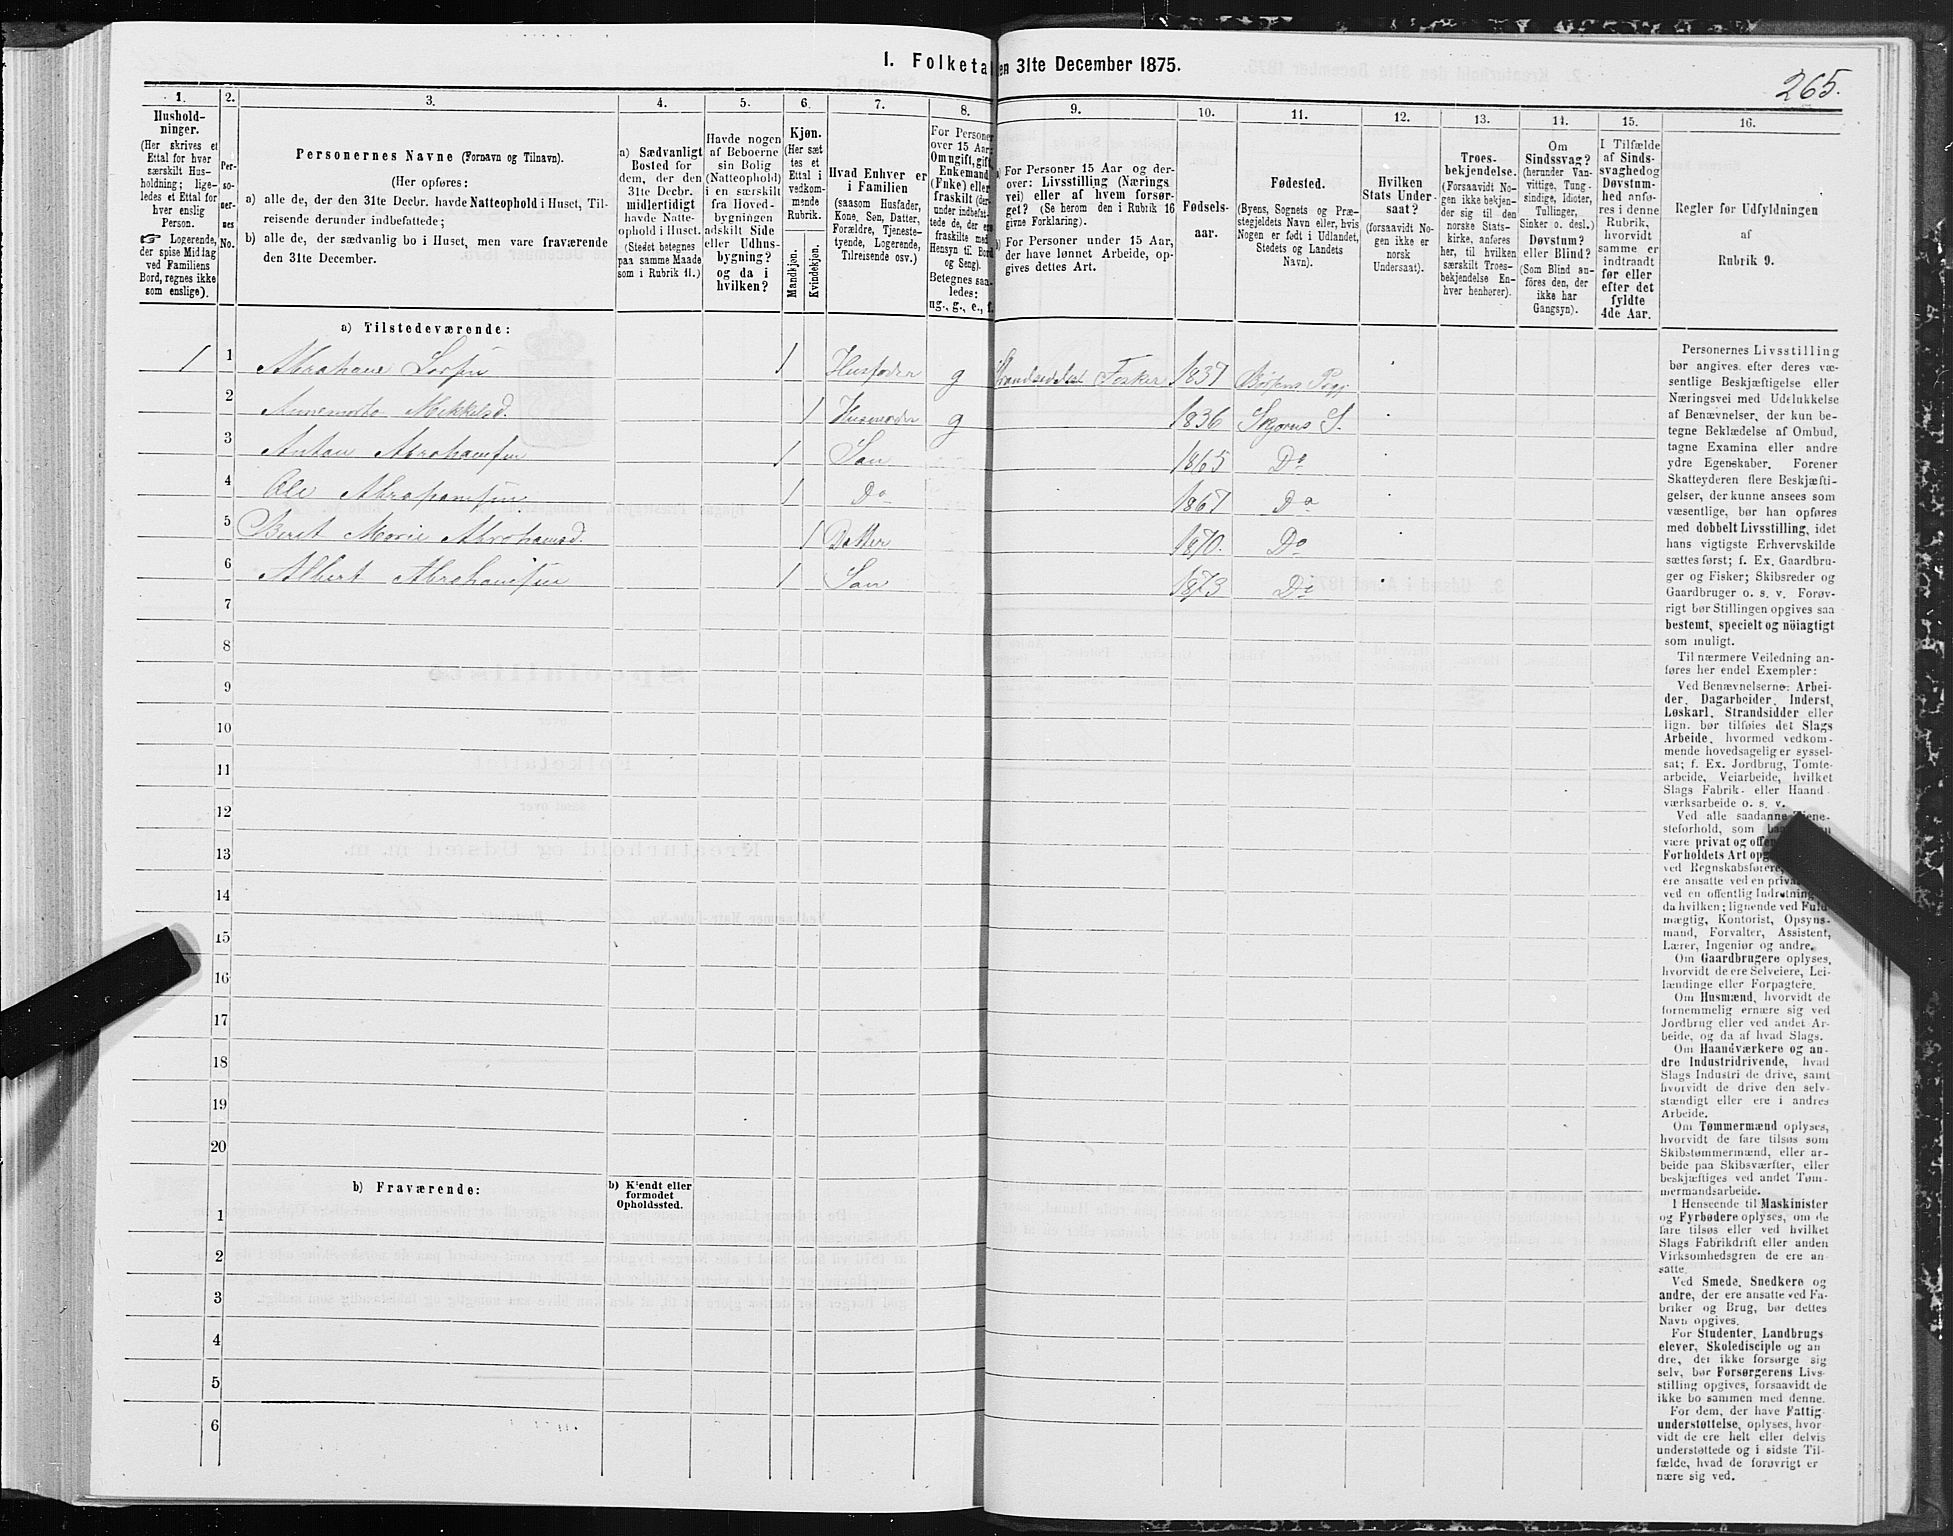 I. Folketal den 31te December 1875.
265.
1.
Hushold-
ninger.
(Her skrives et
Ettal for hver
særskilt Hus-
holdning; lige-
ledes et Ettal for
hver enslig
Person.
☞ Logerende,
der spise Middag
ved Familiens
Bord, regnes ikke
som enslige).
2.
Per-
so-
ner-
nes
No.
3.
Personernes Navne (Fornavn og Tilnavn).
(Her opføres:
a) alle de, der den 31te Decbr. havde Natteophold i Huset, Til-
reisende derunder indbefattede;
b) alle de, der sædvanlig bo i Huset, men vare fraværende
den 31te December.
4.
a) Sædvanligt
Bosted for
dem, der den
31te Decbr.
midlertidigt
havde Natte-
ophold i Huset.
(Stedet betegnes
paa samme Maade
som i Rubrik 11.)
5.
Havde nogen
af Beboerne
sin Bolig
(Natteophold)
i en særskilt
fra Hoved-
bygningen
adskilt Side
eller Udhus-
bygning?
og da i
hvilken?
6.
Kjøn.
(Her sæt
tes et
Ettal i
vedkom-
mende
Rubrik.
Mandkjøn.
Kvindekjøn.
7.
Hvad Enhver er
i Familien
(saasom Husfader,
Kone, Søn, Datter,
Forældre, Tjeneste-
tyende, Logerende,
Tilreisende osv.)
8.
For Personer
over 15 Aar:
Om ugift, gift,
Enkemand
(Enke) eller
fraskilt (der-
under indbefat-
tede de, der ere
fraskilte med
Hensyn til Bord
og Seng).
Betegnes saa-
ledes:
ug., g., e., f.
9.
a) For Personer 15 Aar og der-
over: Livsstilling (Nærings
vei) eller af hvem forsør-
get? (Se herom den i Rubrik 16
givne Forklaring).
b) For Personer under 15 Aar,
der have lønnet Arbeide, op-
gives dettes Art.
10.
Fødsels-
aar.
11.
Fødested.
(Byens, Sognets og Præ-
stegjeldets Navn eller, hvis
Nogen er født i Udlandet,
Stedets og Landets
Navn).
12.
Hvilken
Stats Under-
saat?
(forsaavidt No-
gen ikke er
norsk
Undersaat).
13.
Troes-
bekjendelse.
(Forsaavidt No-
gen ikke bekjen-
der sig til den
norske Stats-
kirke, anføres
her, til hvilken
særskilt Troes-
bekjendelse En-
hver henhører).
14.
Om
Sindssvag?
(herunder Van-
vittige, Tung-
sindige, Idioter,
Tullinger,
Sinker o. desl.)
Døvstum?
eller Blind?
(Som Blind an-
føres den, der
ikke har
Gangsyn).
15.
I Tilfælde
af Sinds-
svaghed og
Døvstum-
hed anfø-
res i denne
Rubrik,
hvorvidt
samme er
indtraadt
før eller
efter det
fyldte
4de Aar.
16.
Regler for Udfyldningen
af
Rubrik 9.
a) Tilstedeværende:
1 1 1 Husfader g Strandsidder Fisker 1837
2 Mikkelsd. 1 Husmoder g 1836 Skjørns S.
3 Anton Abrahamsen 1 Søn 1865 Do
4 Ole Abrahamsen 1 Do 1867 Do
5 Berit Marie Abrahamsd. 1 Datter 1870. Do
6 Albert Abrahamsen 1 Søn 1873 Do
7
8
9
10
11
12
13
14
15
16
17
18
19
20
b) Fraværende:
b) Kjendt eller
formodet
Opholdssted.
1
2
3
4
5
6
Personernes Livsstilling
bør angives efter deres væ-
sentlige Beskjæftigelse eller
Næringsvei med Udelukkelse
af Benævnelser, der kun be-
tegne Beklædelse af Ombud,
tagne Examina eller andre
ydre Egenskaber. Forener
Skatteyderen flere Beskjæfti-
gelser, der kunne ansees som
væsentlige, bør han opføres
med dobbelt Livsstilling, idet
hans vigtigste Erhvervskilde
sættes først; f. Ex. Gaardbru-
ger og Fisker; Skibsreder og
Gaardbruger o. s. v. Forøv-
rigt bør Stillingen opgives saa
bestemt, specielt og nöiagtigt
som muligt.
Til nærmere Veiledning an-
føres her endel Exempler:
Ved Benævnelserne: Arbei-
der, Dagarbeider, Inderst,
Løskarl, Strandsidder eller
lign. bør tilføies det Slags
Arbeide, hvormed vedkom-
mende hovedsagelig er syssel-
sat; f. Ex. Jordbrug, Tomte-
arbeide, Veiarbeide, hvilket
Slags Fabrik- eller Haand
værksarbeide o. s. v.
Ved alle saadanne Tjene-
steforhold, som
være privat og
Forholdets Art
ved Regnskabsførere,
ere ansatte ved en
ved en offentlig Indretning
da hvilken; lignende ved Fuld
mægtig, Kontorist, Opsyns-
mand, Forvalter, Assistent,
Lærer, Ingeniør og andre.
Om Gaardbrugere oplyses,
hvorvidt de ere Selveiere, Lei-
lændinge eller Forpagtere.
Om Husmænd, hvorvidt de
fornemmelig ernære sig ved
Jordbrug eller ved andet Ar-
beide, og da af hvad Slags.
Om Haandværkere og an-
dre Industridrivende, hvad
Slags Industri de drive, samt
hvorvidt de drive den selv-
stændigt eller ere i andres
Arbeide.
Om Tømmermænd oplyses,
hvorvidt de fare tilsøs som
Skibstømmermænd, eller ar-
beide paa Skibsværfter, eller
beskjæftiges ved andet Tøm-
mermandsarbeide.
I Henseende til Maskinister
og Fyrbødere oplyses, om de
fare tilsøs eller ved hvilket
Slags Fabrikdrift eller anden
Virksomhedsgren de ere an-
satte.
Ved Smede, Snedkere og
andre, der ere ansatte ved Fa-
briker og Brug, bør dettes
Navn opgives.
For Studenter, Landbrugs
elever, Skoledisciple og an
dre, der ikke forsørge sig
selv, bør Forsørgerens Livs-
stilling opgives, forsaavidt de
ikke bo sammen med denne.
For dem, der have Fattig
understøttelse, oplyses, hvor-
vidt de ere helt eller delvis
understøttede og i sidste Til-
fælde, hvad de forøvrigt er
nære sig ved.